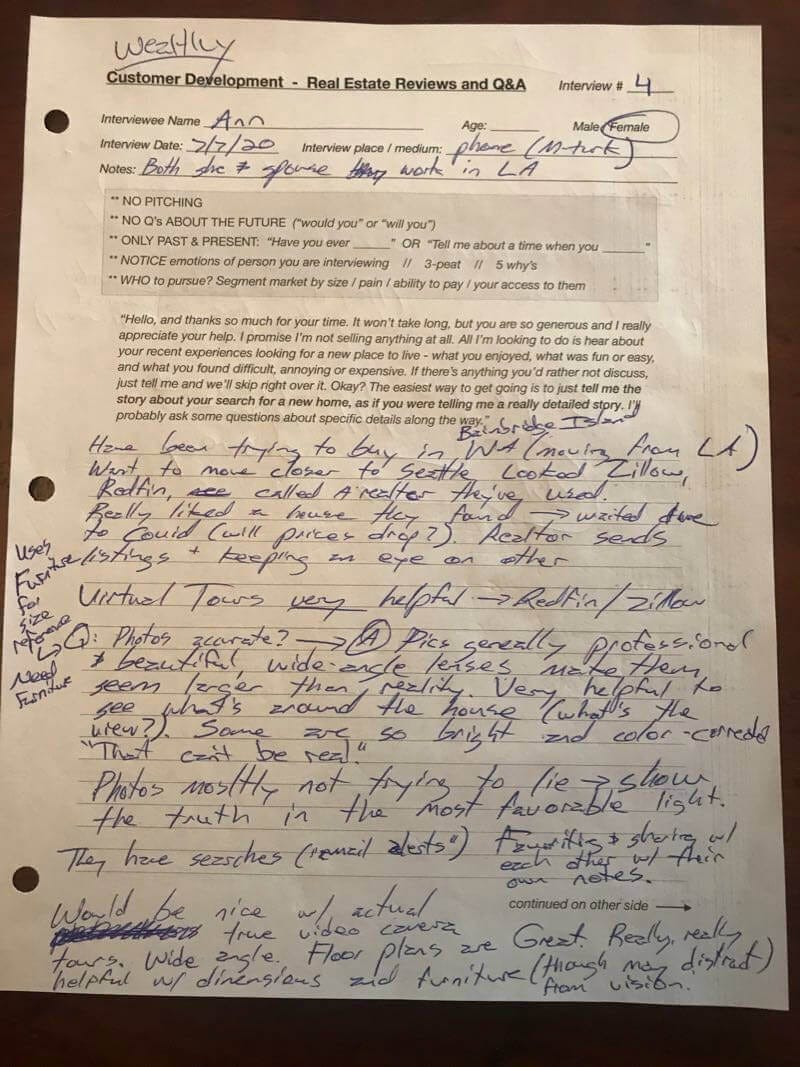 Wealthy
Customer Development - Real Estate Reviews and Q&A Interview # 4
Interviewee Name Ann Age: Male/Female
Interview Date: 7/7/20 Interview place / medium: phone (M-turk)
Notes: Both she + spouse work in LA
** NO PITCHING
** NO Q's ABOUT THE FUTURE ("would you" or "will you")
** ONLY PAST & PRESENT: "Have you ever ______" OR "Tell me about a time when you ______"
** NOTICE emotions of person you are interviewing // 3-peat // 5 why's
** WHO to pursue? Segment market by size / pain / ability to pay / your access to them
"Hello, and thanks so much for your time. It won't take long, but you are so generous and I really
appreciate your help. I promise I'm not selling anything at all. All I'm looking to do is hear about
your recent experiences looking for a new place to live - what you enjoyed, what was fun or easy,
and what you found difficult, annoying or expensive. If there's anything you'd rather not discuss,
just tell me and we'll skip right over it. Okay? The easiest way to get going is to just tell me the
story about your search for a new home, as if you were telling me a really detailed story. I'll
probably ask some questions about specific details along the way."
Bainbridge Island
Have been trying to buy in WA (moving from LA)
Want to move closer to Seattle. Looked Zillow,
Redfin, called A realtor they've used.
Really liked a house they found → waited due
to Covid (will prices drop?). Realtor sends
listings + keeping an eye on other
Virtual Tours very helpful → Redfin/Zillow
Uses
Furniture
for
size
reference
↳ Need
Furniture
Q: Photos accurate? → A Pics generally professional
+ beautiful, wide-angle lenses make them
seem larger than reality. Very helpful to
see what's around the house (what's the
view?). Some are so bright and color-corrected
"That can't be real."
Photos mostly not trying to lie → show
the truth in the most favorable light.
They have searches ("email alerts")
Favoriting + sharing w/
each other w/ their
own notes.
continued on other side →
Would be nice w/ actual
true video camera
tours. Wide angle. Floor plans are Great. Really, really
helpful w/ dimensions and furniture (though may distract)
from vision.